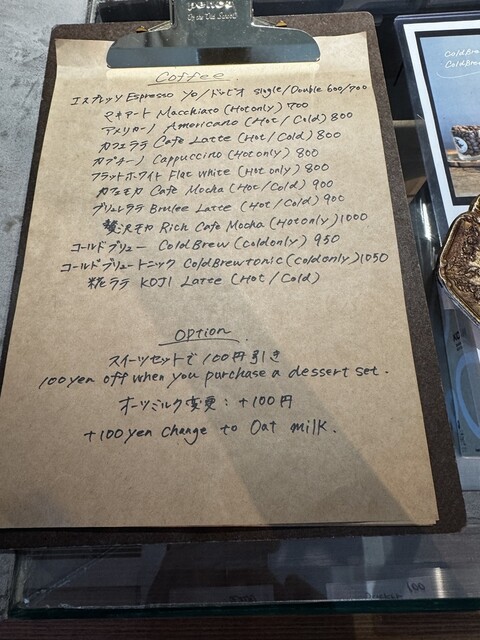 penco
Coffee
エスプレッソ Espresso ソロ/ドッピオ single/Double 600/700
マキアート Macchiato (Hot only) 700
アメリカーノ Americano (Hot / Cold) 800
カフェラテ Cafe Latte (Hot / Cold) 800
カプチーノ Cappuccino (Hot only) 800
フラットホワイト Flat White (Hot only) 800
カフェモカ Cafe Mocha (Hot / Cold) 900
ブリュレラテ Brulee Latte (Hot / Cold) 900
贅沢モカ Rich Cafe Mocha (Hot only) 1000
コールドブリュー Cold Brew (Cold only) 950
コールドブリュートニック Cold Brew tonic (cold only) 1050
糀ラテ KOJI Latte (Hot / Cold)
Option
スイーツセットで100円引き
100 yen off when you purchase a dessert set.
オーツミルク変更：+100円
+100 yen change to Oat milk.
Cold Brew
Cold Brew
100